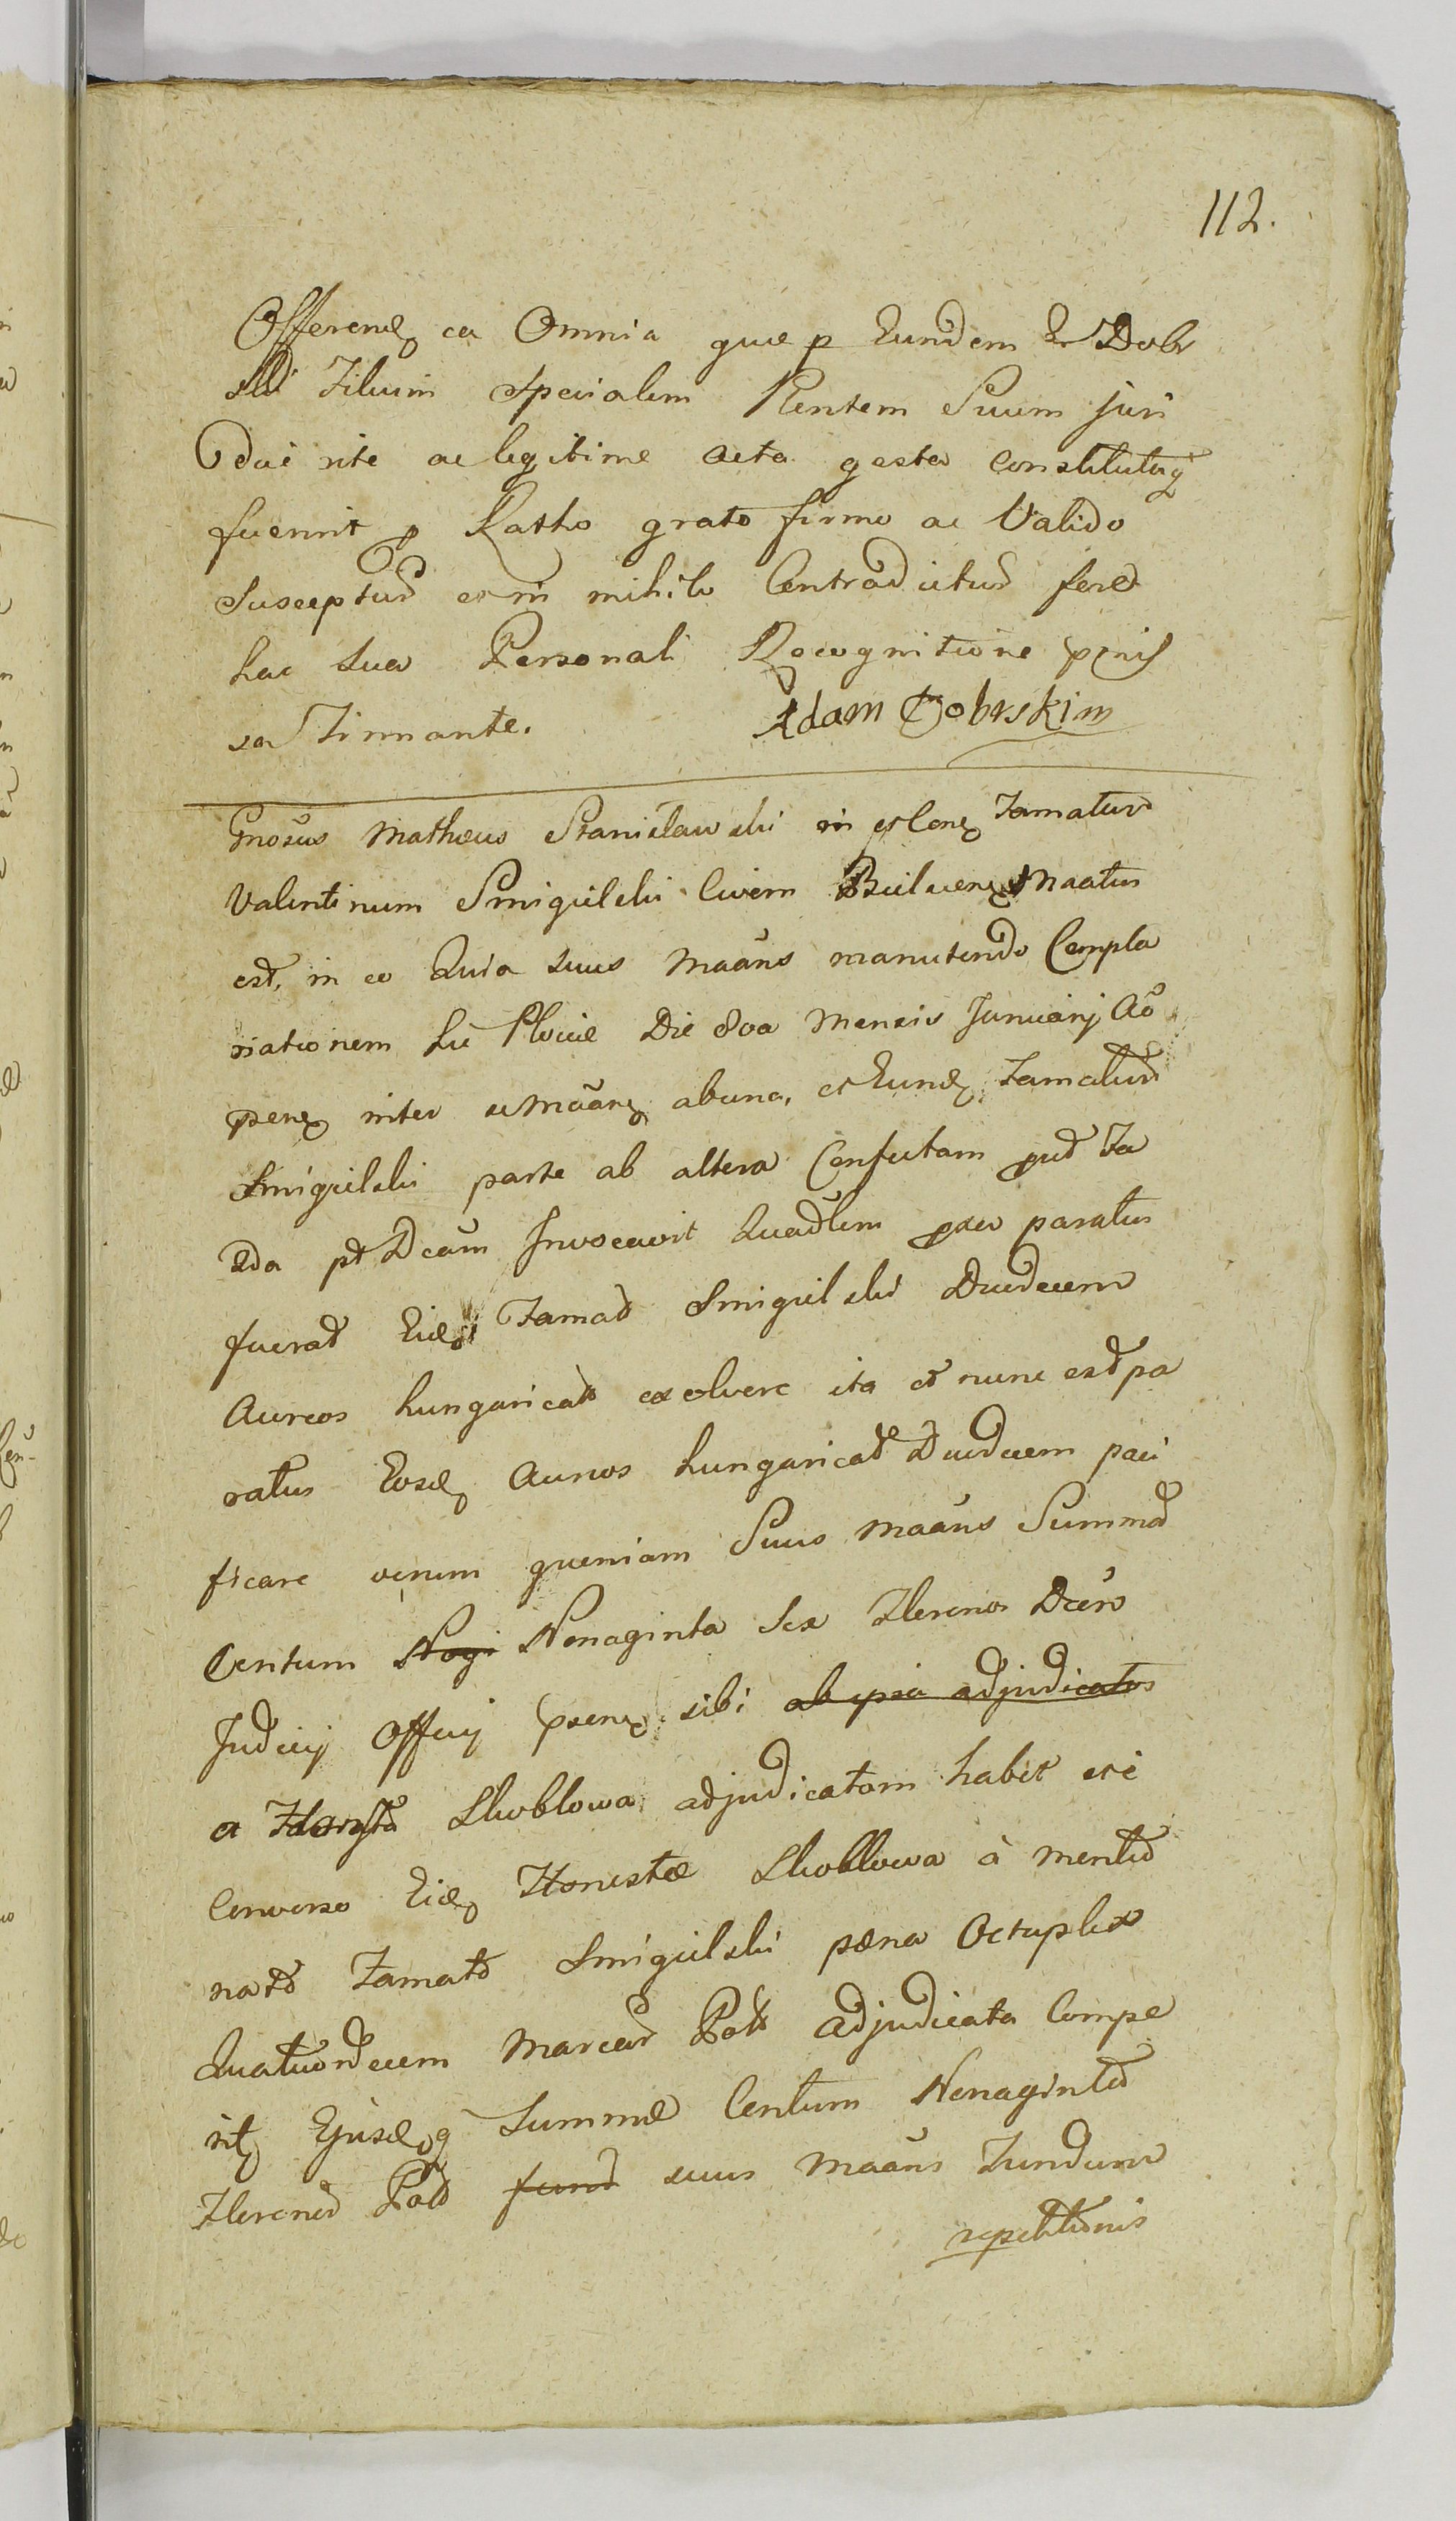 112.
Offerend ea Omnia quæ p Eundem Gr Dobr
ski Filium Specialem Plentem Suum juri
dice rite ac legitime acta gesta constitutaq
fuerint p Ratho grato firmo ac Valido
Susceptur et in nihilo Contradictur fere
hac sua Personali Recognitione pmis
sa Firmante.
Adam Dobrskim
Gnosus Matheus Stanisławski in Famatum
Valentinum Smigielski Civem Maatus
est, in eo Quia suus Maans manutendo Compla
nationem hic Płociæ Die 8va Mensis Januarij Ao
pnn inter se Maann ab una, et Eund Famatum
Smigielski parte ab altera Confectam prut Fa
Qda pt Dcam Invocavit Quadlem prao paratus
fuerat Eid Famato Smigielski Duodecem
Aureos hungaricales exolvere ita et nunc est pa
ratus Eosd Aureos hungaricales Duodecem paci
ficare verum quoniam Suus Maans Summa
Centum Nogi Nonaginta Sex Florenos Dcto
Judicij Officij psens sibi ab ipsa adjudicatos
a Honesta Skoblowa adjudicatam habet et e
Converso Eid Honestæ Skoblowa à mentio
nato Famato Smigielski pæna Octuplex
Quatuordecem Marcar Pol adjudicata Compe
tit Ejusdq Summæ Centum Nonaginta
Floreno Pol fund suus Maans Fundum
repetitionis